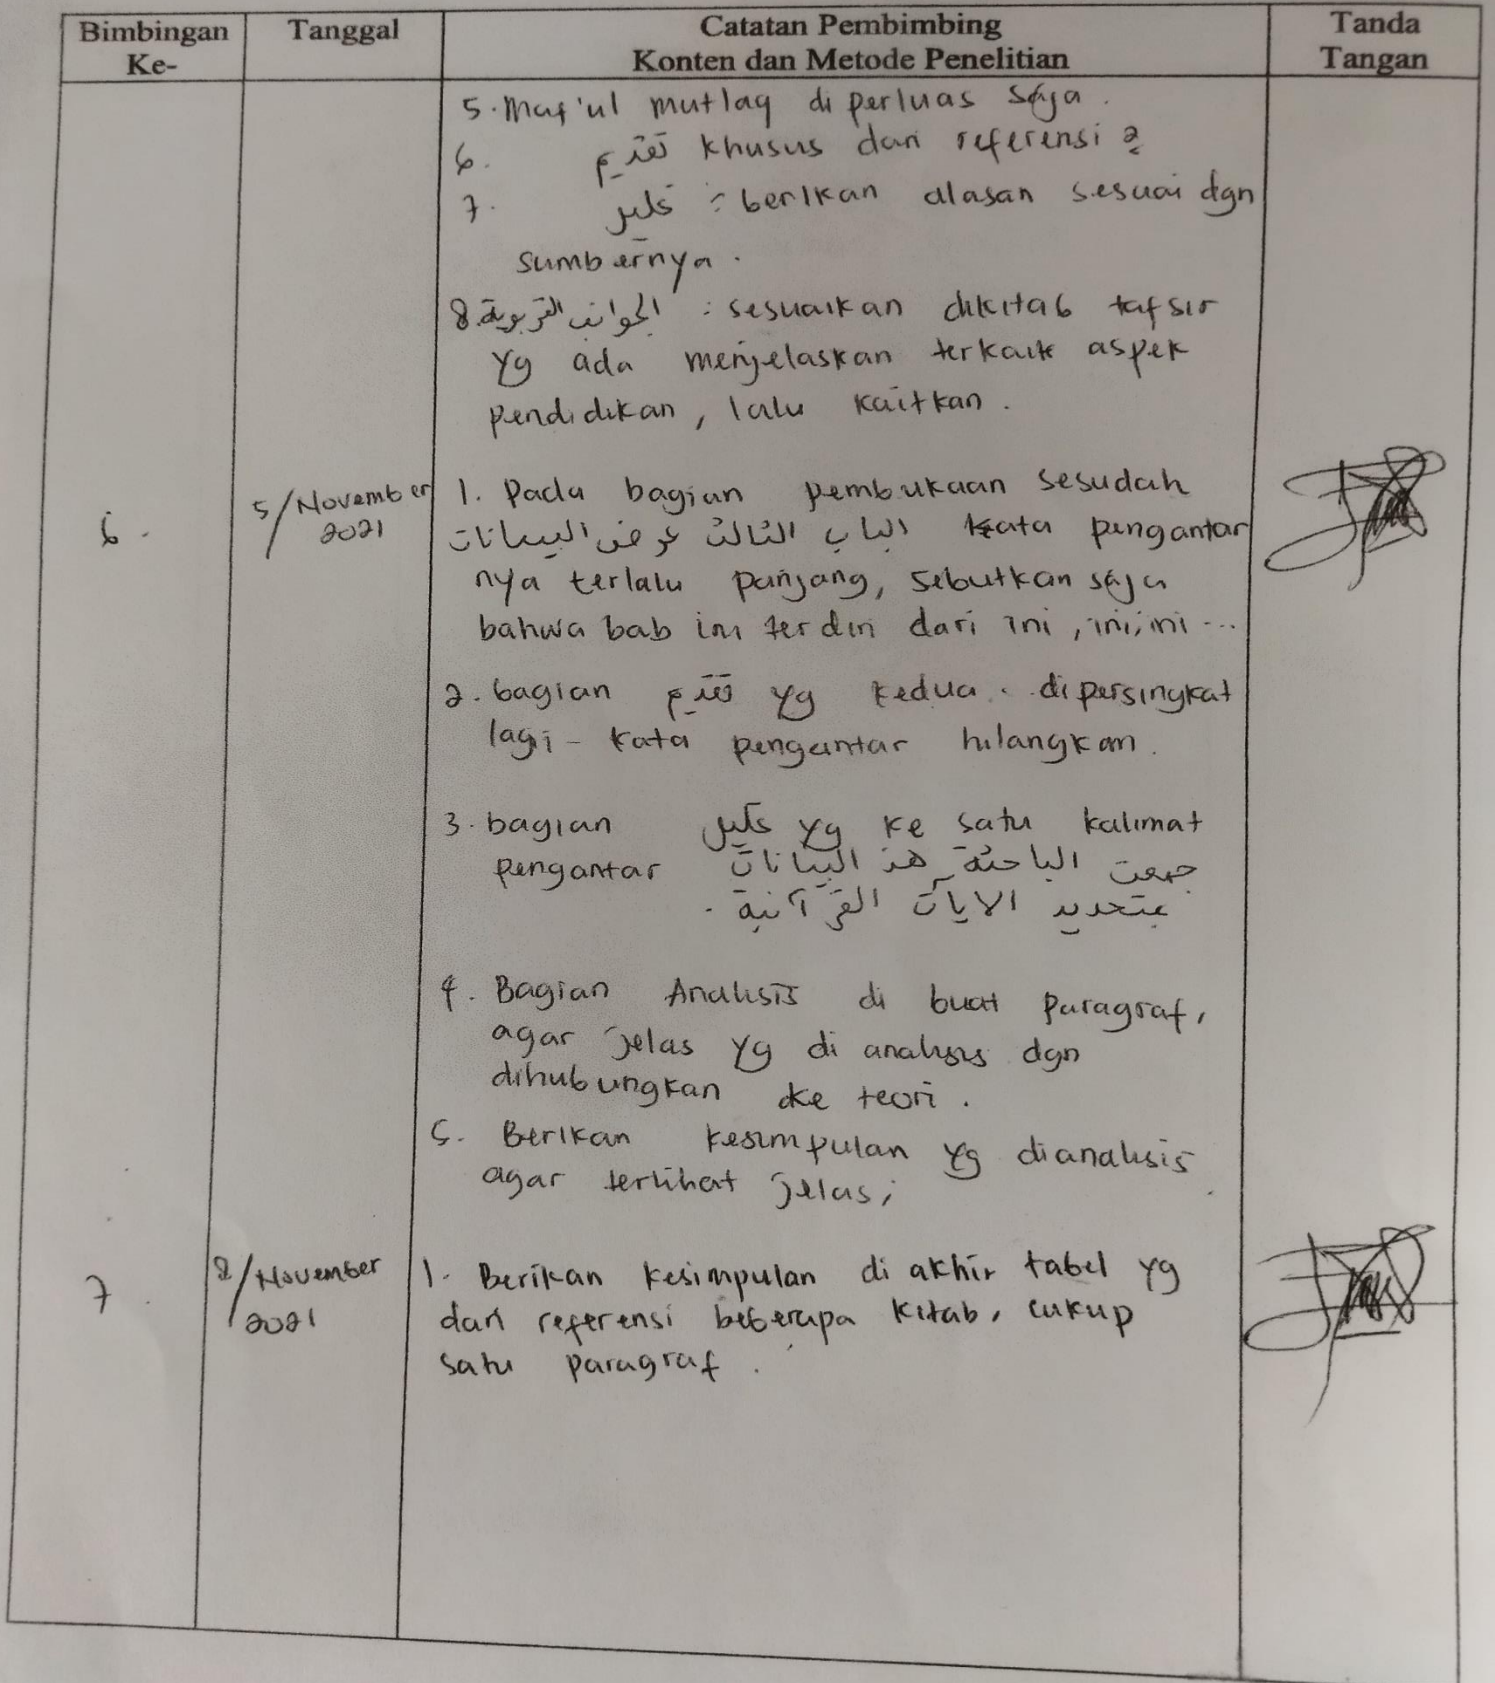 Bimbingan Ke-
Tanggal
Catatan Pembimbing
Konten dan Metode Penelitian
Tanda Tangan
5. Maf'ul mutlaq di perluas saja.
6. تقديم khusus dari referensi 2
7. تحليل : berikan alasan sesuai dgn
sumbernya.
8. الجوانب التربوية : sesuaikan dikitab tafsir
yg ada menjelaskan terkait aspek
pendidikan, lalu kaitkan.
6.
5/November
2021
1. Pada bagian pembukaan sesudah
الباب الثالث عرض البيانات kata pengantar
nya terlalu panjang, sebutkan saja
bahwa bab ini terdiri dari ini, ini, ini ...
2. bagian تقديم yg kedua. dipersingkat
lagi - kata pengantar hilangkan.
3. bagian تحليل yg ke satu kalimat
pengantar جمعت الباحثة هذ البيانات
بتحديد الايات القرآنية.
4. Bagian Analisis di buat paragraf,
agar jelas yg di analisis dgn
dihubungkan ke teori.
5. Berikan kesimpulan yg dianalisis
agar terlihat jelas;
7
8/November
2021
1. Berikan kesimpulan di akhir tabel yg
dari referensi beberapa kitab, cukup
satu paragraf.